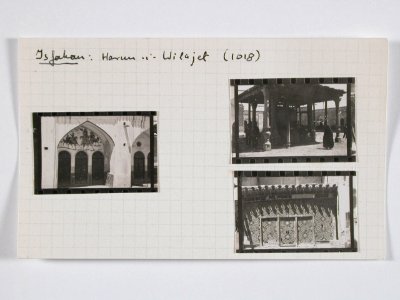 Isfahan: Harun i- Wilajet (1018)